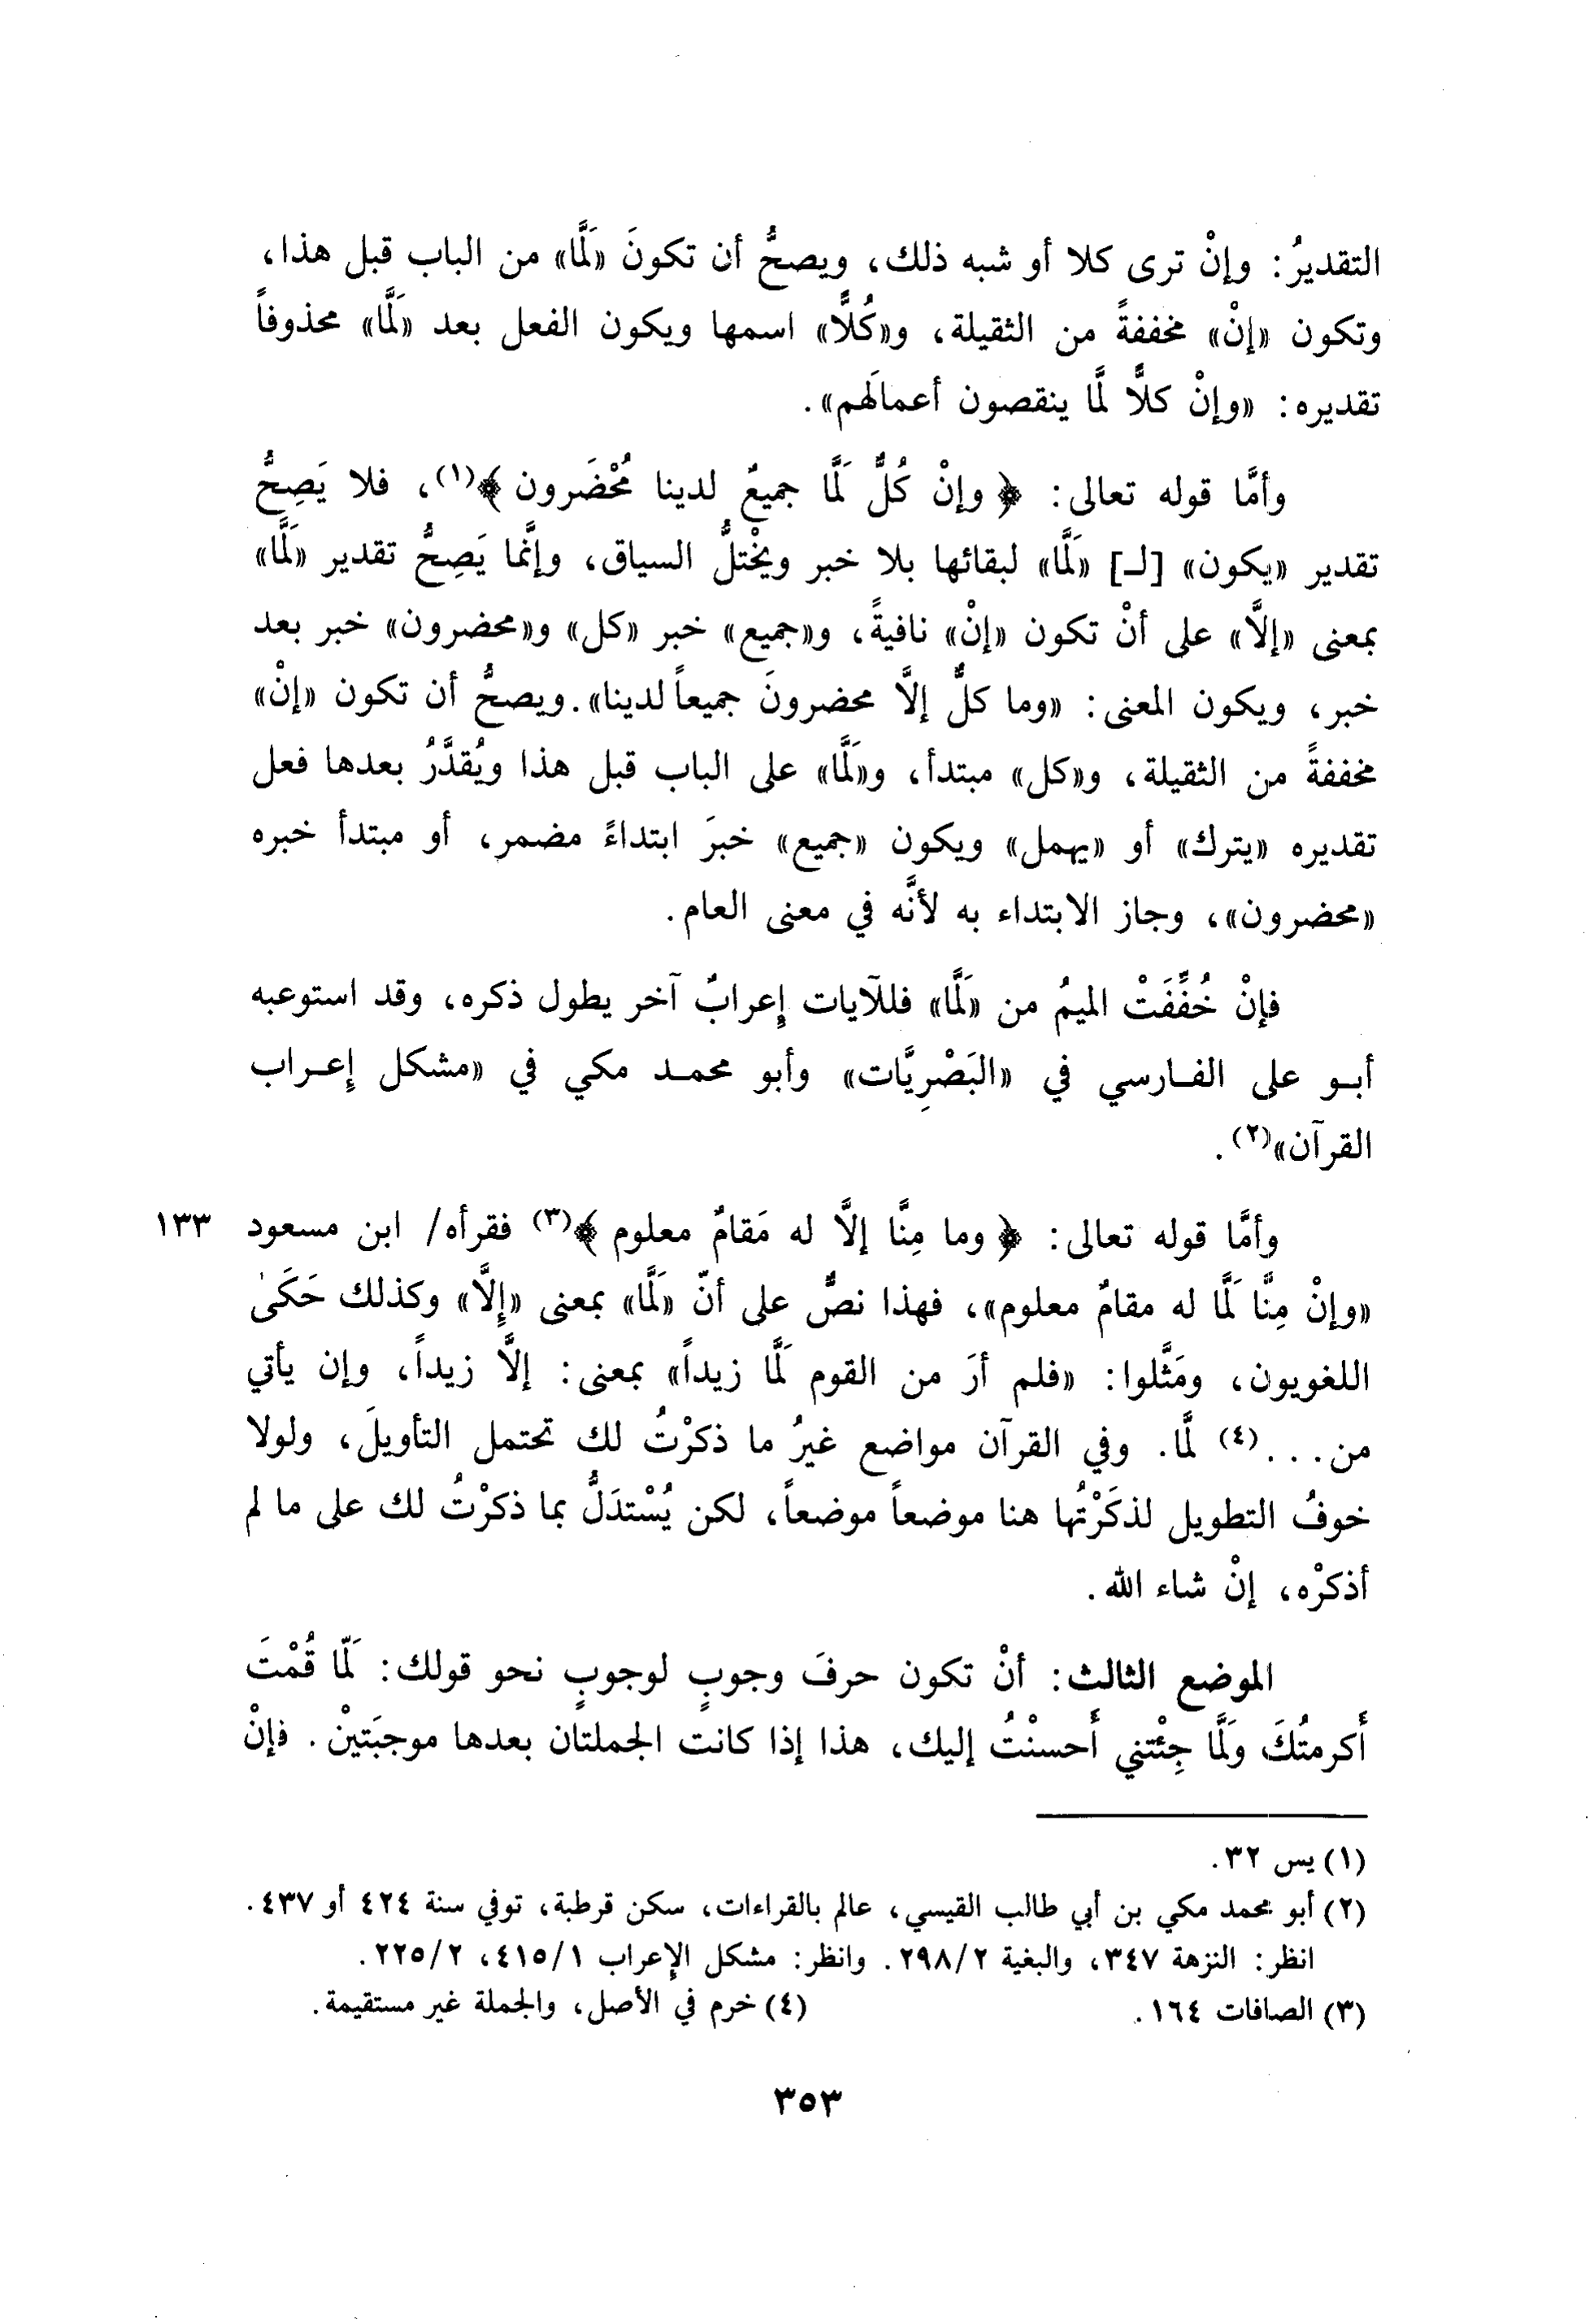 التقديرُ: وإنْ ترى كلا أو شبه ذلك، ويصحُّ أن تكونَ «لَمَّا» من الباب قبل هذا،
وتكون «إنْ» مخففةً من الثقيلة، و«كُلًّا» اسمها ويكون الفعل بعد «لَمَّا» محذوفاً
تقديره: «وإنْ كلاًّ لمَّا ينقصون أعمالَهم».
وأمَّا قوله تعالى: ﴿ وإنْ كُلٌّ لَمَّا جميعٌ لدينا مُحْضَرون ﴾(١)، فلا يَصِحُّ
تقدير «يكون» [لـ] «لَمَّا» لبقائها بلا خبر ويخْتلُّ السياق، وإنَّما يَصِحُّ تقدير «لَمَّا»
بمعنى «إلَّا» على أنْ تكون «إنْ» نافيةً، و«جميع» خبر «كل» و«محضرون» خبر بعد
خبر، ويكون المعنى: «وما كلٌّ إلَّا محضرونَ جميعاً لدينا». ويصحُّ أن تكون «إنْ»
مخففةً من الثقيلة، و«كل» مبتدأ، و«لَمَّا» على الباب قبل هذا ويُقدَّرُ بعدها فعل
تقديره «يترك» أو «يهمل» ويكون «جميع» خبرَ ابتداءً مضمر، أو مبتدأ خبره
«محضرون»، وجاز الابتداء به لأنَّه في معنى العام.
فإنْ خُفِّفَتْ الميمُ من «لَمَّا» فللآيات إعرابٌ آخر يطول ذكره، وقد استوعبه
أبو على الفارسي في «البَصْرِيَّات» وأبو محمد مكي في «مشكل إعراب
القرآن»(٢).
وأمَّا قوله تعالى: ﴿ وما مِنَّا إلَّا له مَقامٌ معلوم ﴾(٣) فقرأه/ ابن مسعود ١٣٣
«وإنْ مِنَّا لَمَّا له مقامٌ معلوم»، فهذا نصٌّ على أنّ «لَمَّا» بمعنى «إلَّا» وكذلك حَكَىٰ
اللغويون، ومَثَّلوا: «فلم أرَ من القوم لَمَّا زيداً» بمعنى: إلَّا زيداً، وإن يأتي
من...(٤) لمَّا. وفي القرآن مواضع غيرُ ما ذكرْتُ لك تحتمل التأويلَ، ولولا
خوفُ التطويل لذكَرْتُها هنا موضعاً موضعاً، لكن يُسْتدَلُّ بما ذكرْتُ لك على ما لم
أذكرْه، إنْ شاء الله.
الموضع الثالث: أنْ تكون حرفَ وجوبٍ لوجوبٍ نحو قولك: لَمّا قُمْتَ
أَكرمتُكَ ولَمَّا جِئْتني أَحسنْتُ إليك، هذا إذا كانت الجملتان بعدها موجبَتينْ. فإنْ
(١) يس ٣٢.
(٢) أبو محمد مكي بن أبي طالب القيسي، عالم بالقراءات، سكن قرطبة، توفي سنة ٤٢٤ أو ٤٣٧.
انظر: النزهة ٣٤٧، والبغية ٢٩٨/٢. وانظر: مشكل الإعراب ٤١٥/١، ٢٢٥/٢.
(٣) الصافات ١٦٤. (٤) خرم في الأصل، والجملة غير مستقيمة.
٣٥٣